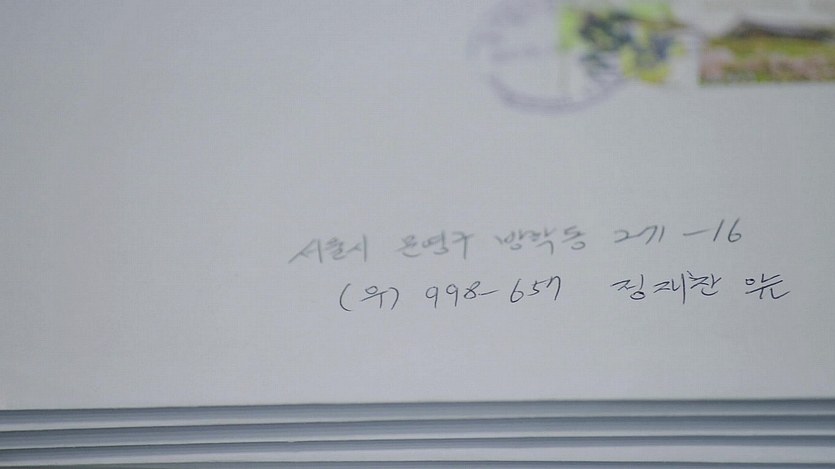 서울시 은영구 방학동 271-16
(우) 998-657 정재찬 앞